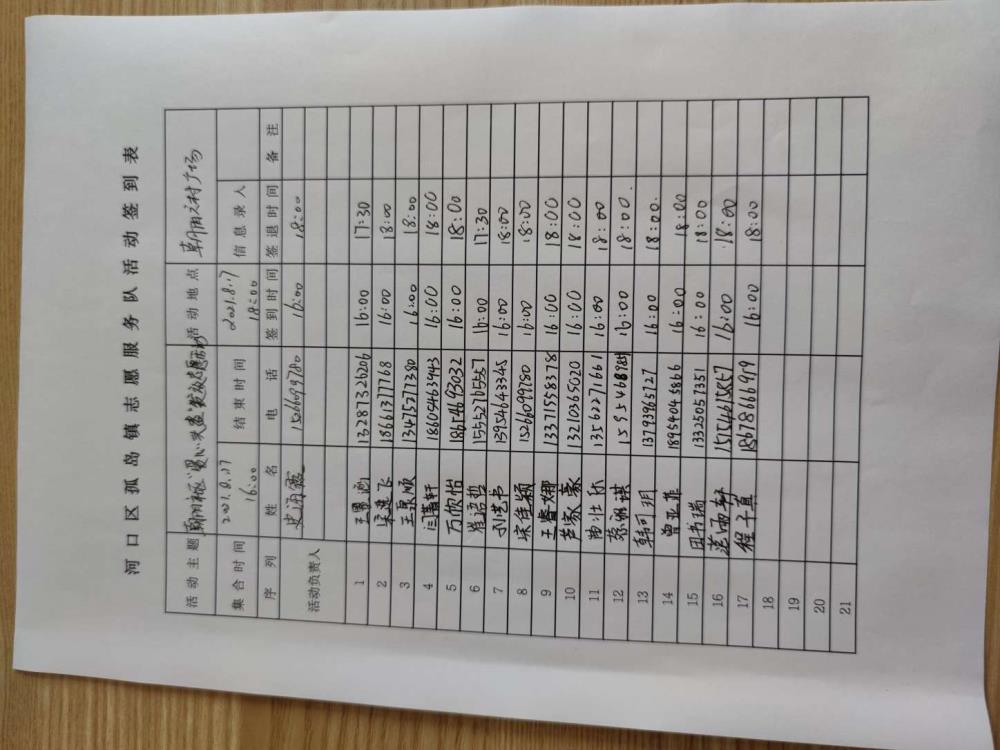 河口区孤岛镇志愿服务队活动签到表
活动主题 朝阳社区"爱心 活动地点 朝阳农村广场
集合时间 2021.8.17 16:00 结束时间 2021.8.17 18:00 信息录入人
序列 姓名 电话 签到时间 签退时间 备注
活动负责人 15266099780 16:00 18:00
1 13287326206 16:00 17:30
2 宋逸飞 18661377768 16:00 18:00
3 王泉顺 13475277380 16:00 18:00
4 18605463443 16:00 18:00
5 万欣怡 18674693032 16:00 18:00
6 崔语哲 15552765557 16:00 17:30
7 刘艺书 13954643345 16:00 18:00
8 宋佳颖 15266099780 16:00 18:00
9 王睿娜 13371558378 16:00 18:00
10 芦家豪 13210365020 16:00 18:00
11 13562271661 16:00 18:00
12 16:00 18:00
13 韩可玥 13793965727 16:00 18:00
14 曾亚菲 18950455866 16:00 18:00
15 田书瑞 13325057351 16:00 18:00
16 15154615857 16:00 18:00
17 程子真 15678666919 16:00 18:00
18
19
20
21